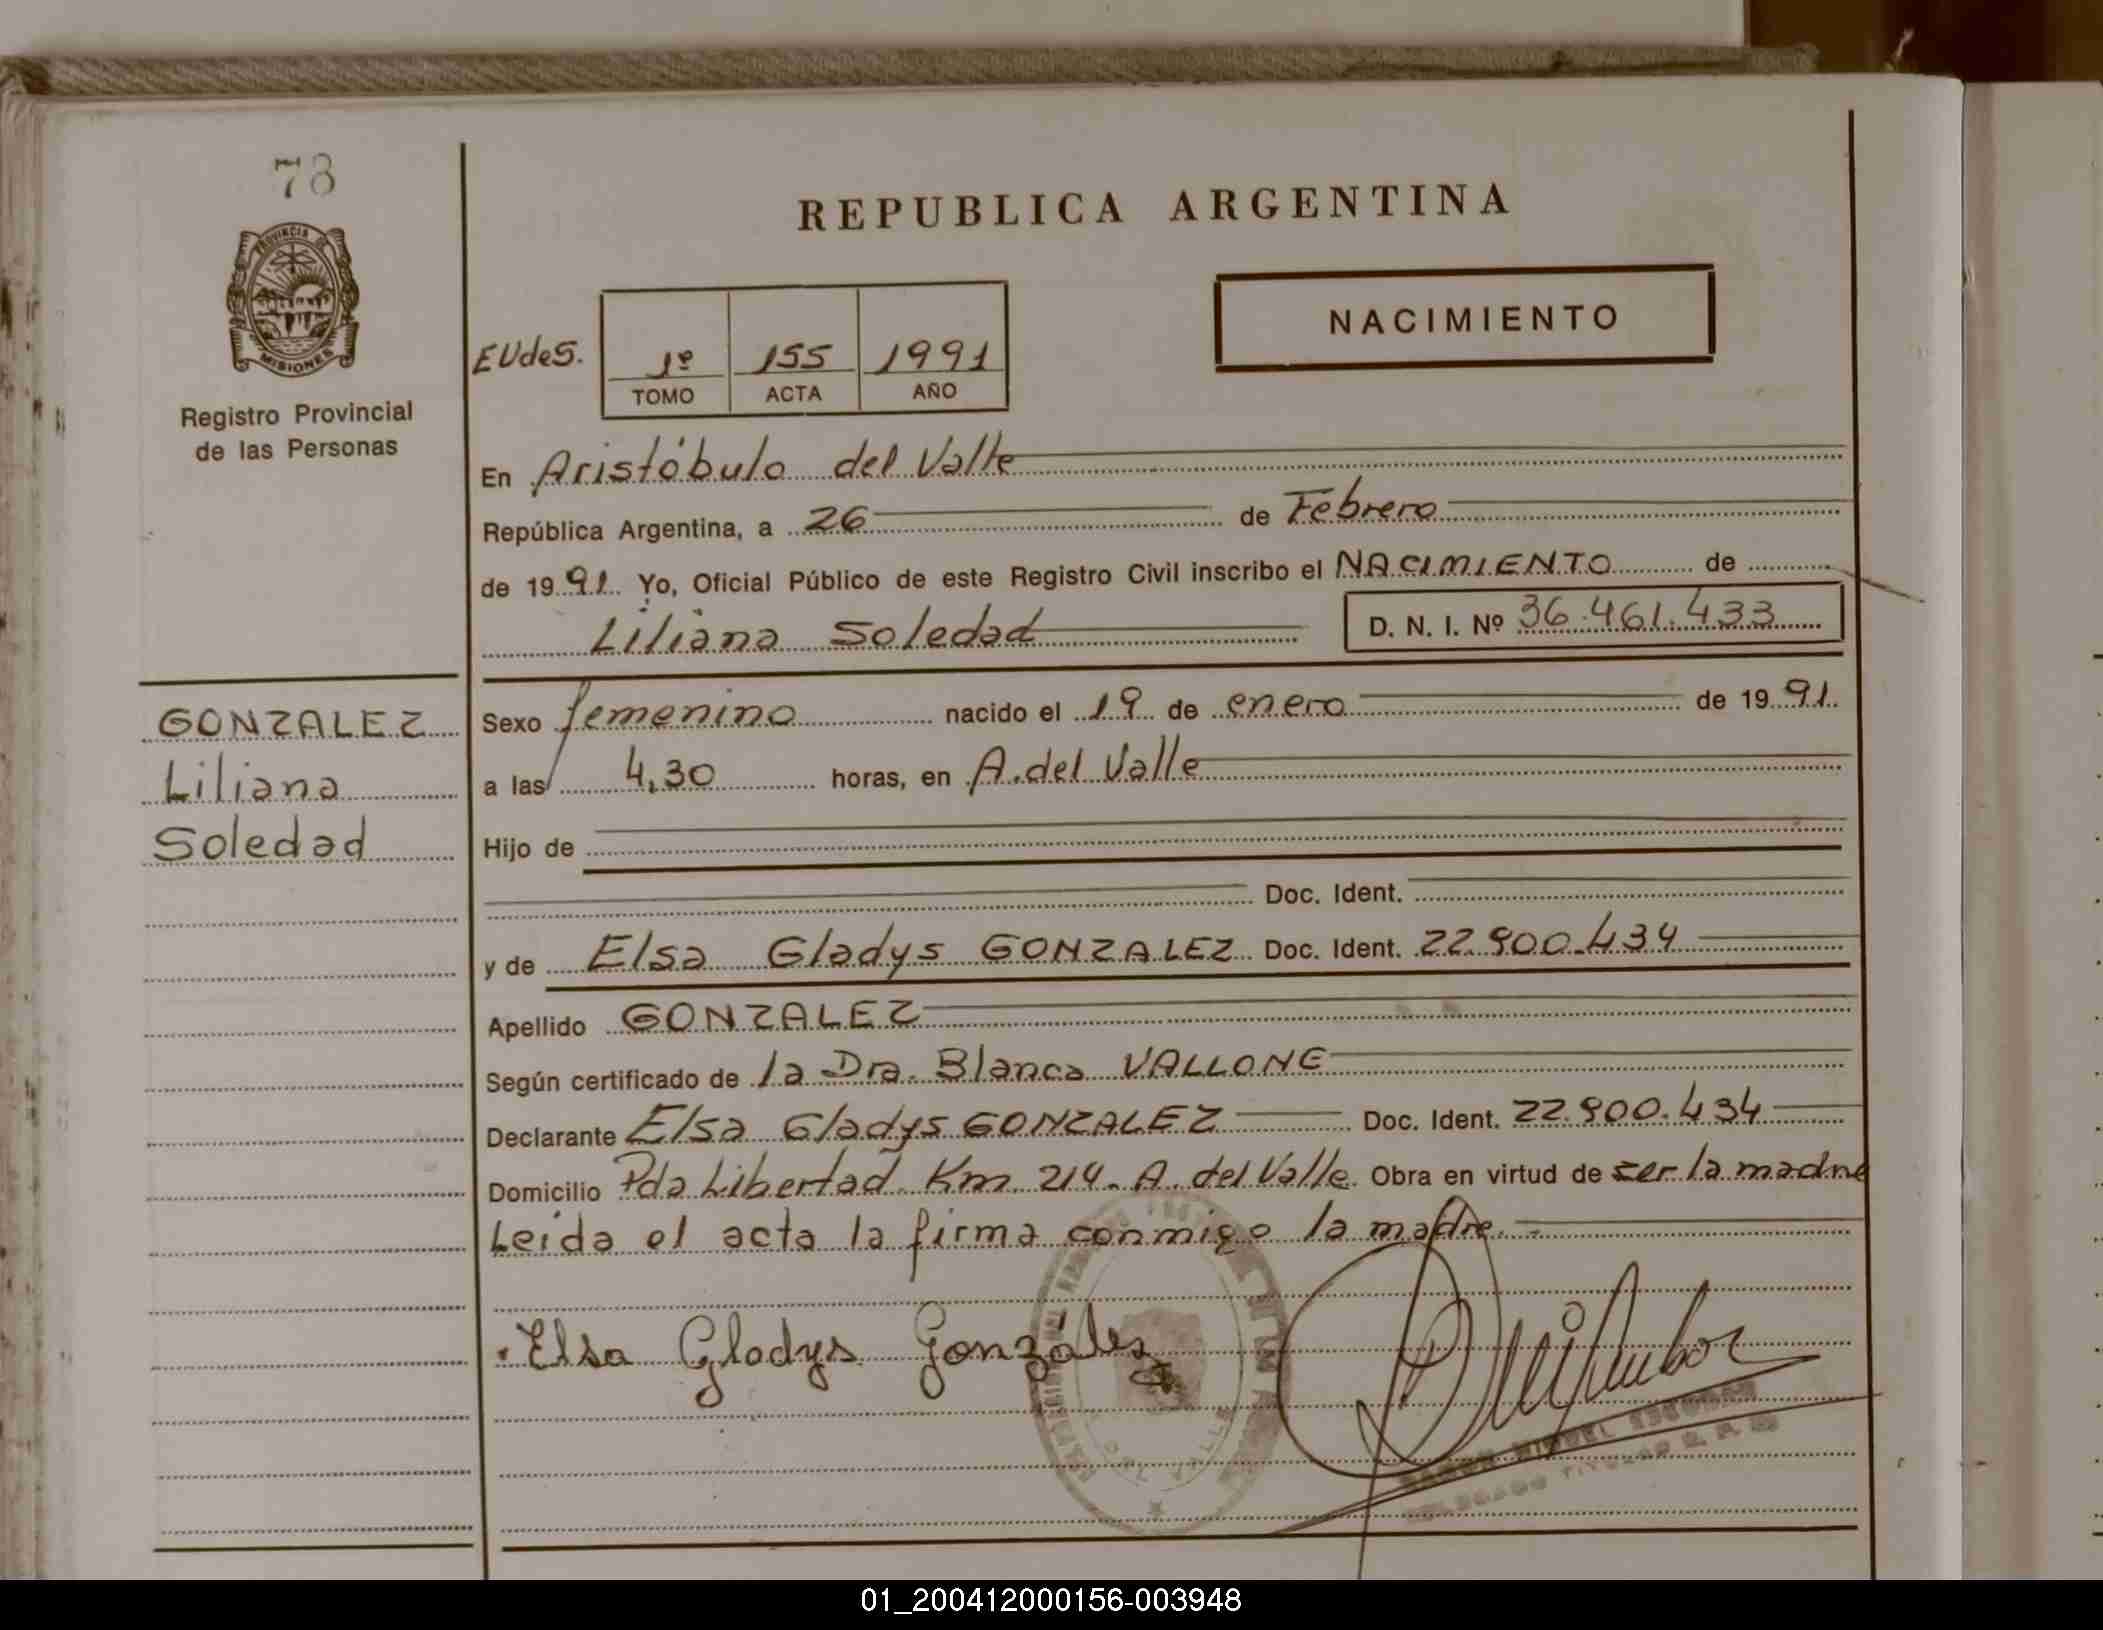 78
PROVINCIA DE
MISIONES
Registro Provincial
de las Personas
REPUBLICA ARGENTINA
NACIMIENTO
EUdeS. 1º 155 1991
TOMO ACTA AÑO
En Aristóbulo del Valle
República Argentina, a 26 de Febrero
de 1991. Yo, Oficial Público de este Registro Civil inscribo el NACIMIENTO de
Liliana Soledad D. N. I. Nº 36.461.433
GONZALEZ
Liliana
Soledad
Sexo femenino nacido el 19 de enero de 1991.
a las 4,30 horas, en A. del Valle
Hijo de
Doc. Ident.
y de Elsa Gladys GONZALEZ Doc. Ident. 22.900.434
Apellido GONZALEZ
Según certificado de la Dra. Blanca VALLONE
Declarante Elsa Gladys GONZALEZ Doc. Ident. 22.900.434
Domicilio Pda Libertad Km. 214. A. del Valle. Obra en virtud de ser la madre
Leida el acta la firma conmigo la madre.-
Elsa Gladys González
MIGUEL
DELEGADO TITULAR
01_200412000156-003948